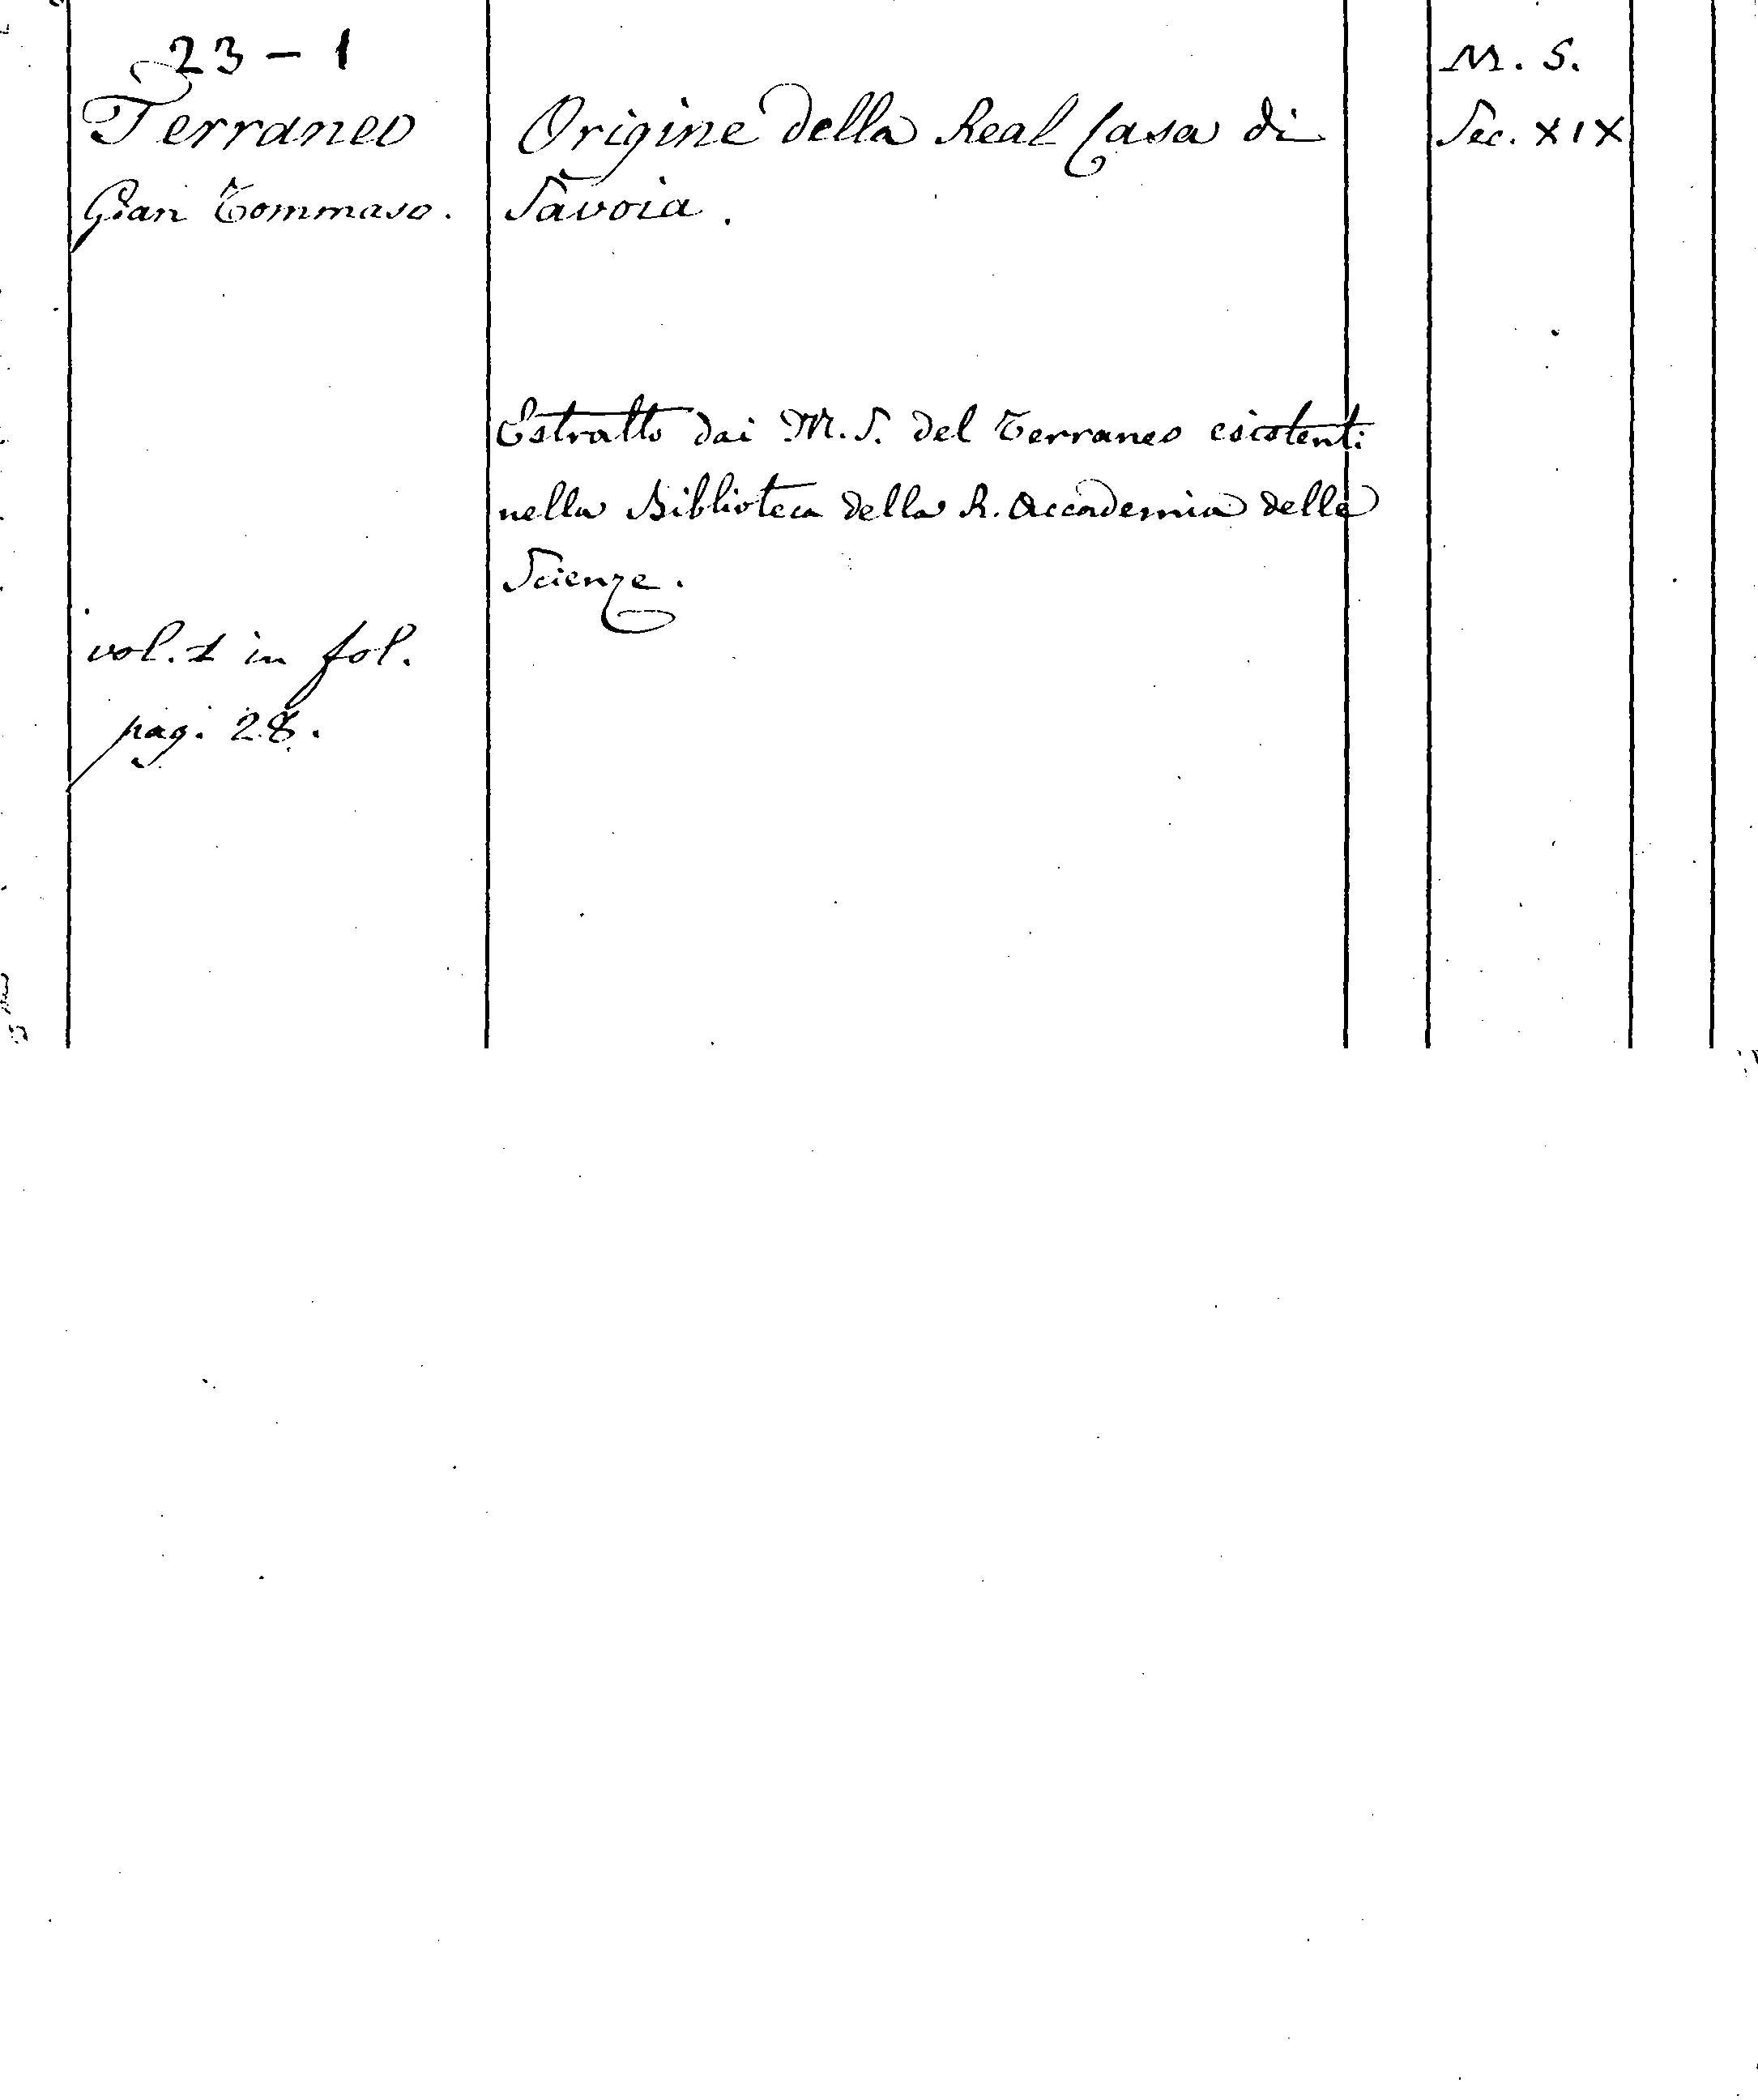 23 - 1
Terraneo
Gian Tommaso.
vol. 1 in fol.
pag. 28.
Origine della Real Casa di
Savoia.
Estratto dai M.S. del Terraneo esistenti
nella Biblioteca della R. Accademia delle
Scienze.
M. S.
Sec. XIX